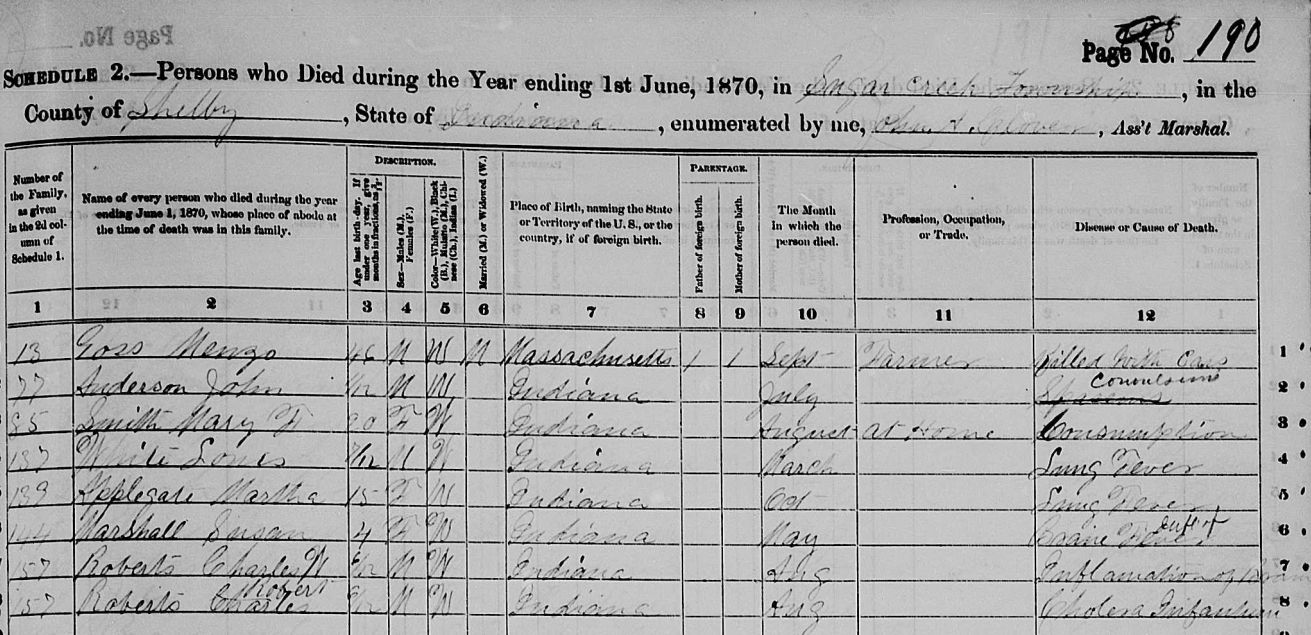 Page No. 190
SCHEDULE 2.—Persons who Died during the Year ending 1st June, 1870, in Sugar Creek Township, in the
County of Shelby, State of Indiana, enumerated by me, John A. Glover, Ass't Marshal.
Number of the Family, as given in the 2d column of Schedule 1.
Name of every person who died during the year ending June 1, 1870, whose place of abode at the time of death was in this family.
DESCRIPTION.
Age last birth-day. If under one year, give months in fractions, as 3/12
Sex—Males (M.), Females (F.)
Color—White (W.), Black (B.), Mulatto (M.), Chinese (Ch.), Indian (I.)
Married (M.) or Widowed (W.)
Place of Birth, naming the State or Territory of the U. S., or the country, if of foreign birth.
PARENTAGE.
Father of foreign birth.
Mother of foreign birth.
The Month in which the person died.
Profession, Occupation, or Trade.
Disease or Cause of Death.
1 2 3 4 5 6 7 8 9 10 11 12
13 Goss Mengo 46 M W M Massachusetts 1 1 Sept Farmer Killed With Cars 1
77 Anderson John /12 M W Indiana July Spasms Convulsions 2
85 Smith Mary F 20 F W Indiana August at Home Consumption 3
137 White Louis /12 M W Indiana March Lung Fever 4
139 Applegate Martha 15 F W Indiana Oct Lung Fever 5
144 Marshall Susan 4 F W Indiana May Brain Fever 6
157 Roberts Charles W /12 M W Indiana Aug Inflamation of Brain 7
157 Roberts Charles Robert /12 M W Indiana Aug Cholera Infantum 8